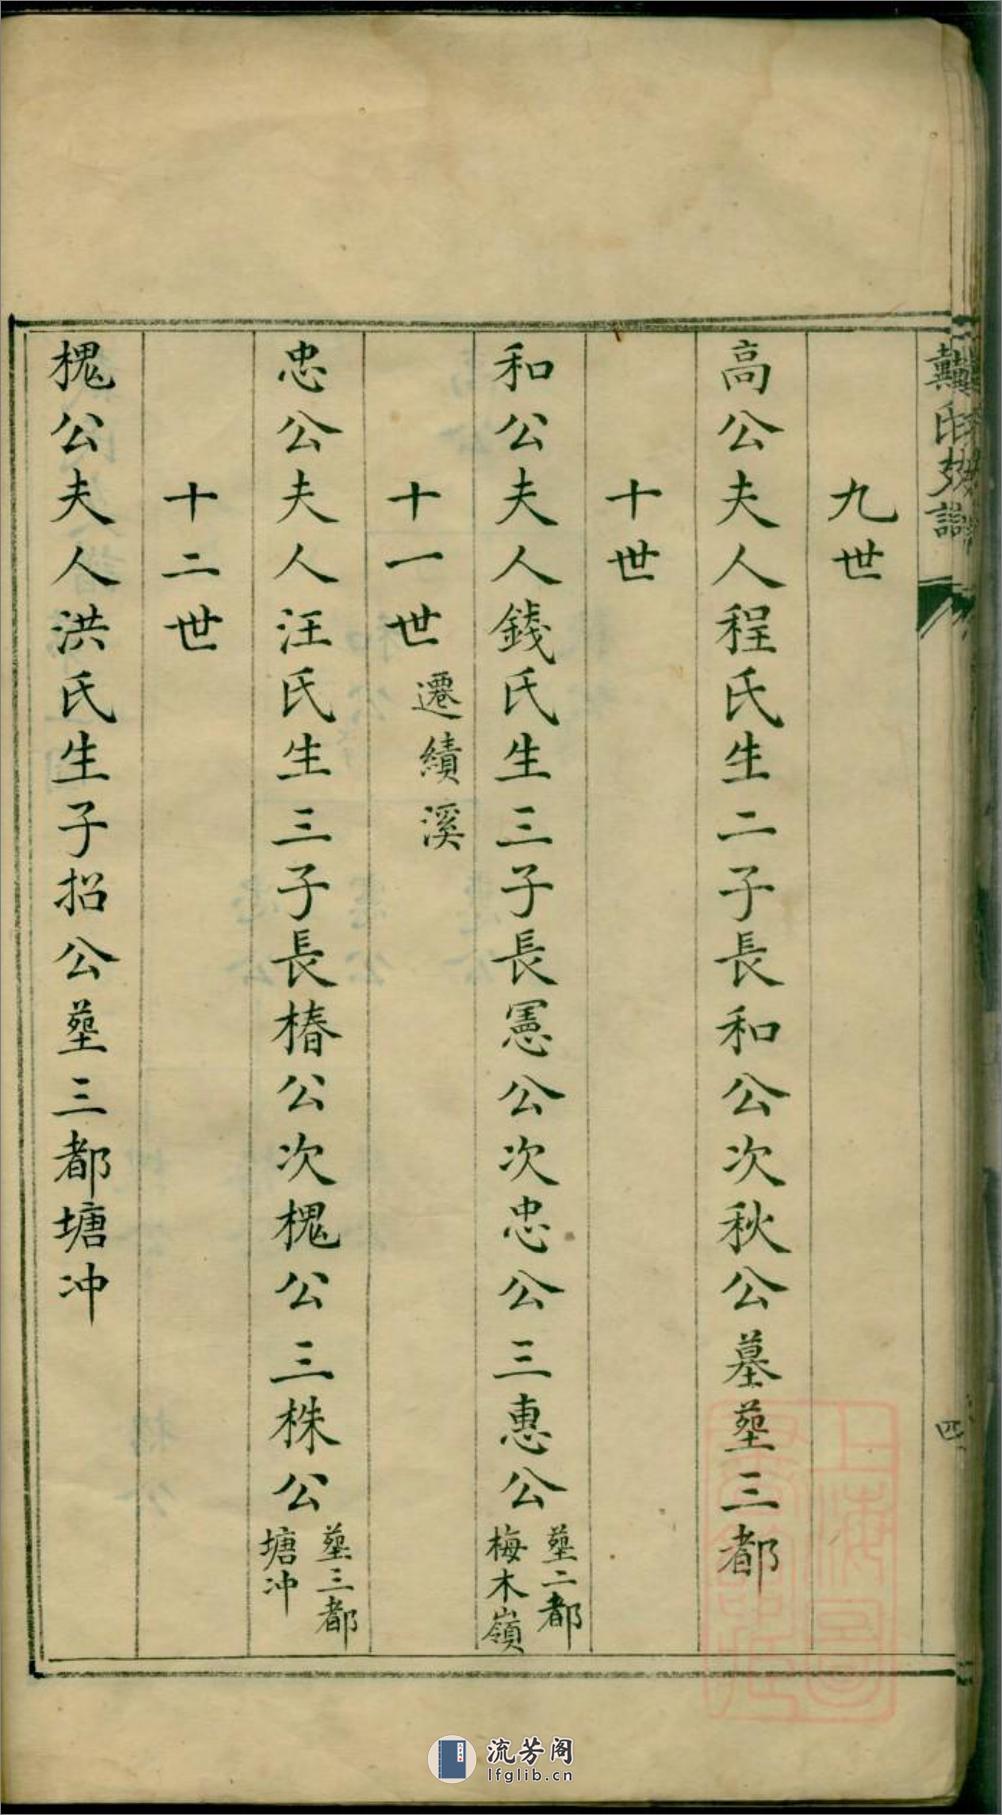 戴氏族譜
四
九世
高公夫人程氏生二子長和公次秋公墓塟三都
十世
和公夫人錢氏生三子長憲公次忠公三惠公塟二都梅木嶺
十一世遷績溪
忠公夫人汪氏生三子長椿公次槐公三株公塟三都塘冲
十二世
槐公夫人洪氏生子招公塟三都塘冲
流芳阁
lfglib.cn